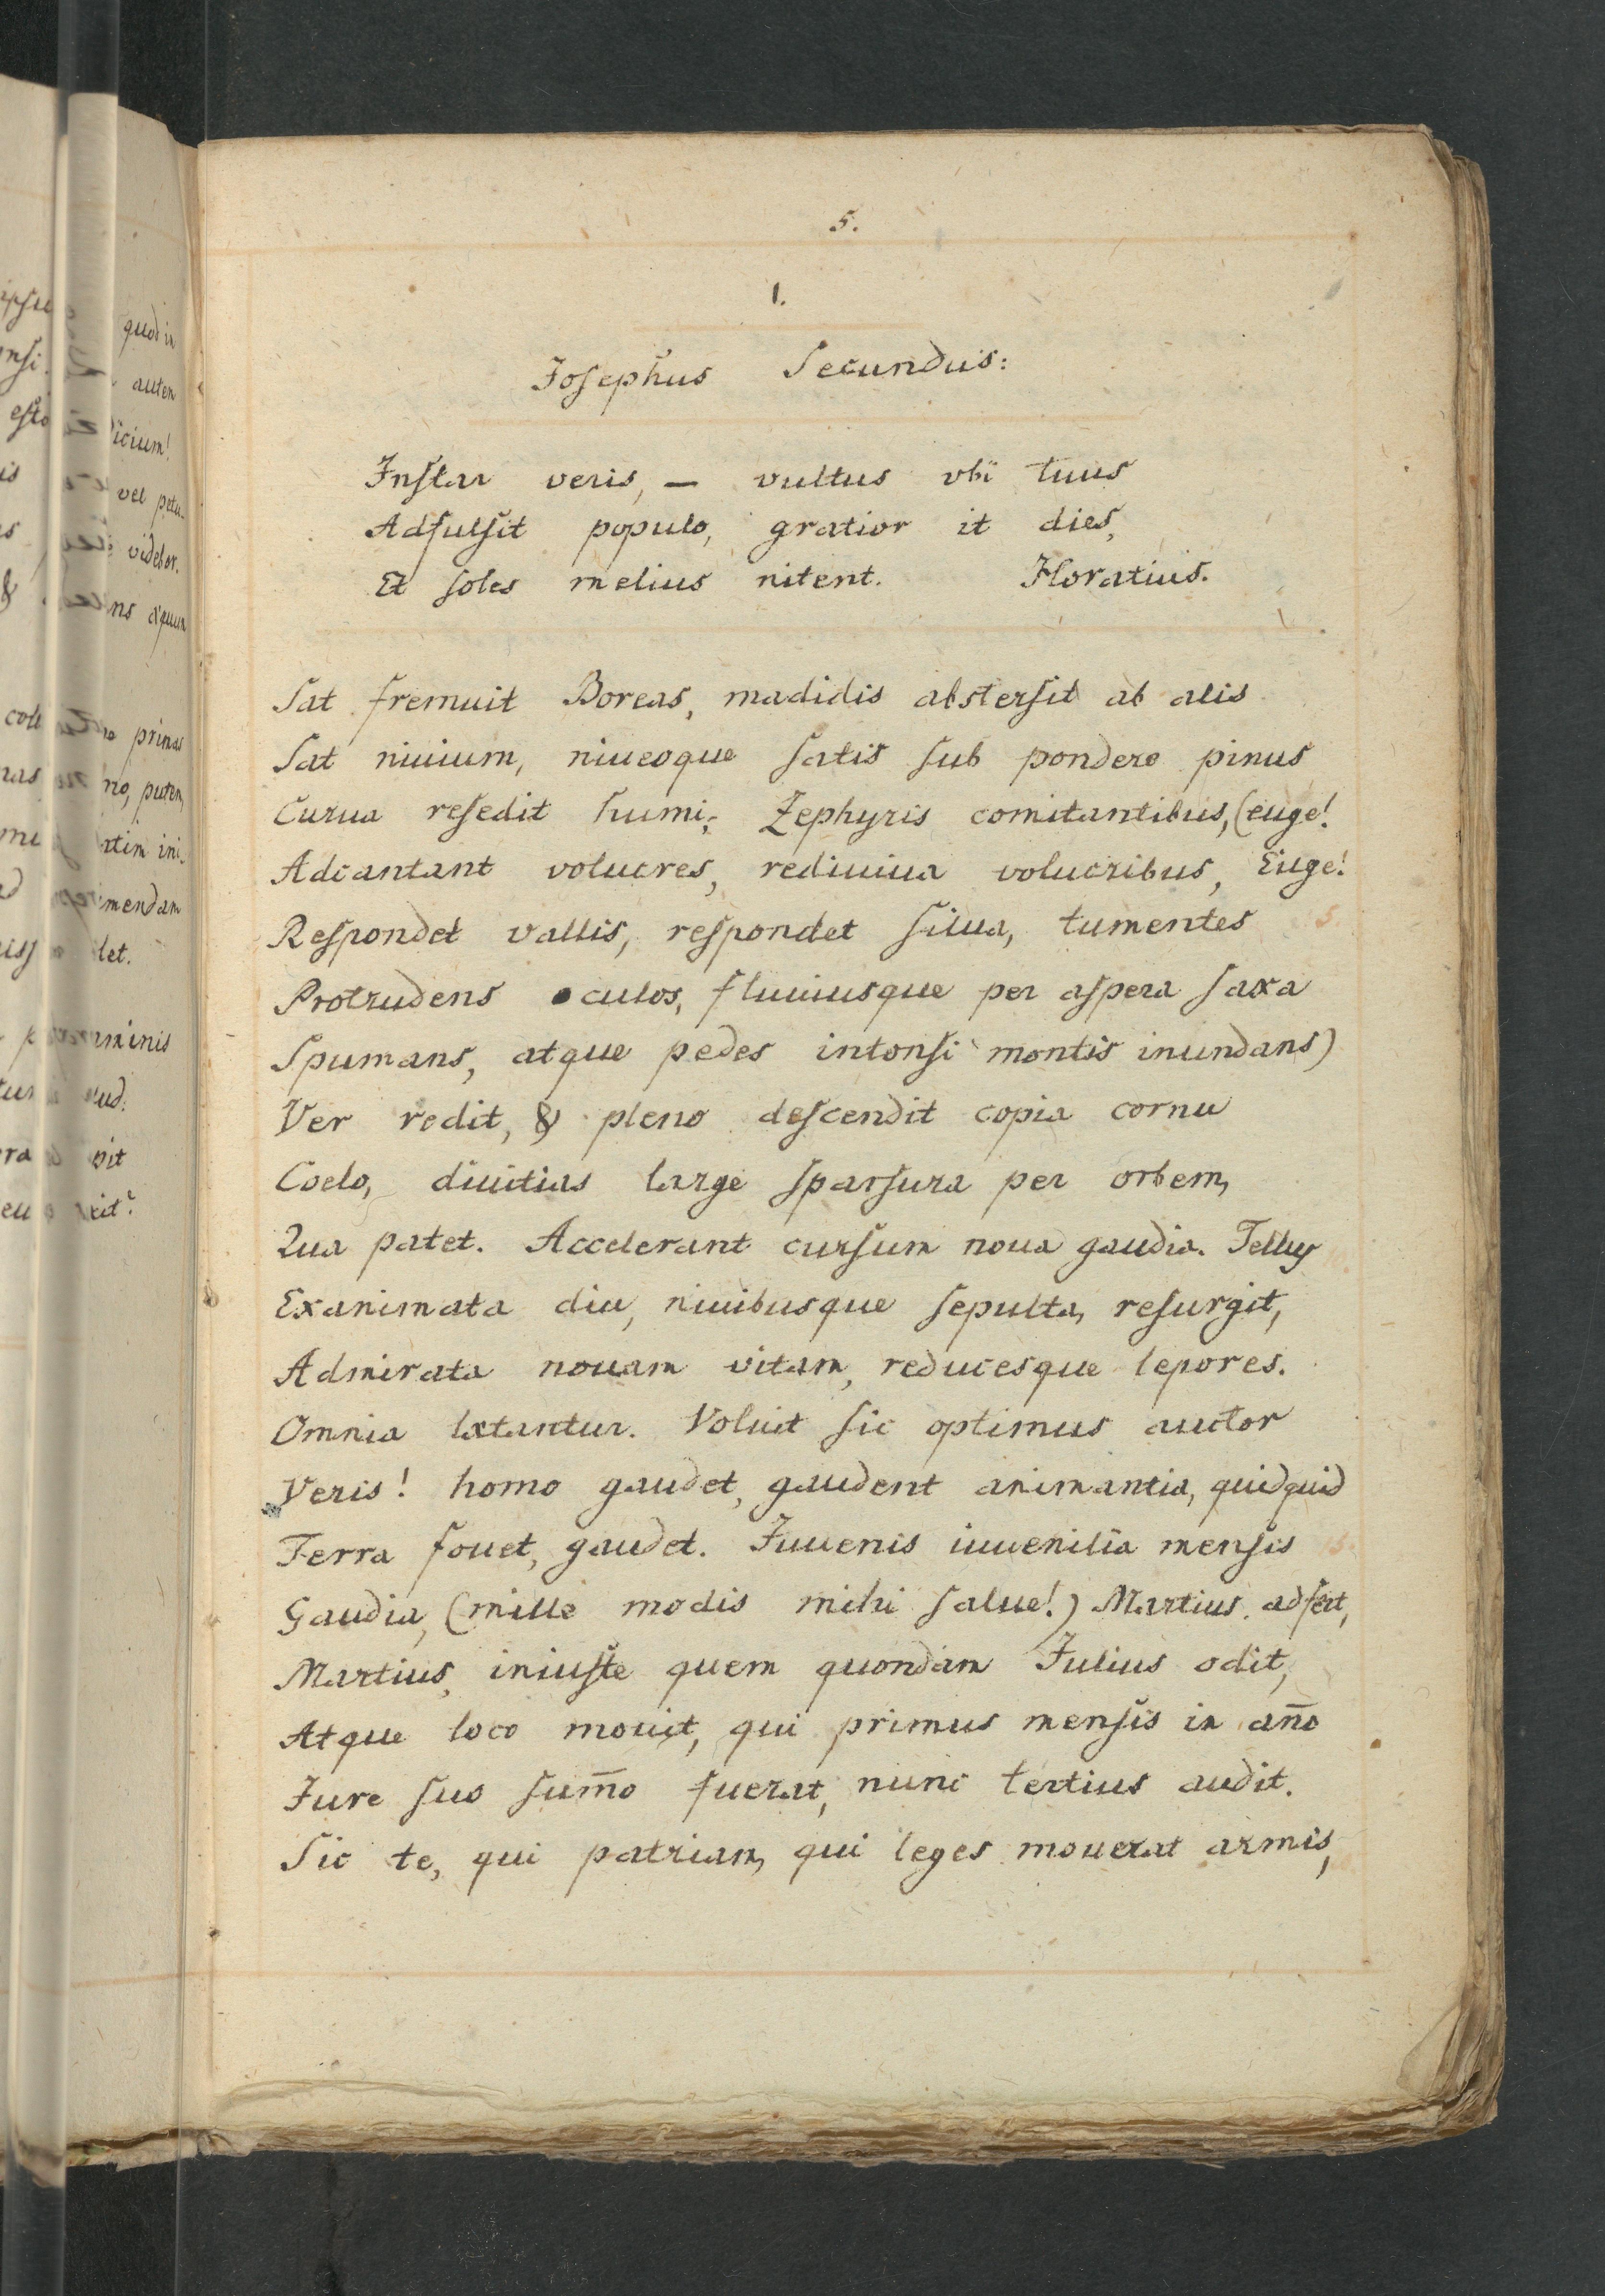 5.
1.
Josephus Secundus:
Instar veris, — vultus vbi tuus
Adfulsit populo, gratior it dies,
Et soles melius nitent. Horatius.
Sat fremuit Boreas, madidis abstersit ab alis
Sat niuium, niueoque satis sub pondere pinus
Curua resedit humi; Zephyris comitantibus, (euge!
Adcantant volucres, rediuiua volucribus, Euge!
Respondet vallis, respondet silua, tumentes 5.
Protrudens oculos, fluuiusque per aspera saxa
Spumans, atque pedes intonsi montis inundans)
Ver redit, & pleno descendit copia cornu
Coelo, diuitias large sparsura per orbem,
Qua patet. Accelerant cursum noua gaudia. Tellus
Exanimata diu, niuibusque sepulta, resurgit,
Admirata nouam vitam, reducesque lepores.
Omnia lætantur. Voluit sic optimus auctor
Veris! homo gaudet, gaudent animantia, quidquid
Terra fouet, gaudet. Juuenis iuuenilia mensis 15.
Gaudia, (mille modis mihi salue!) Martius adfert,
Martius, iniuste quem quondam Julius odit,
Atque loco mouit, qui primus mensis in an̅o
Jure suo sum̅o fuerat, nunc tertius audit.
Sic te, qui patriam, qui leges mouerat armis,
quod in
autem
icium!
vel petu-
videtor.
ns æquum
primas
no, putem,
rtim ini-
imendam
let.
minis